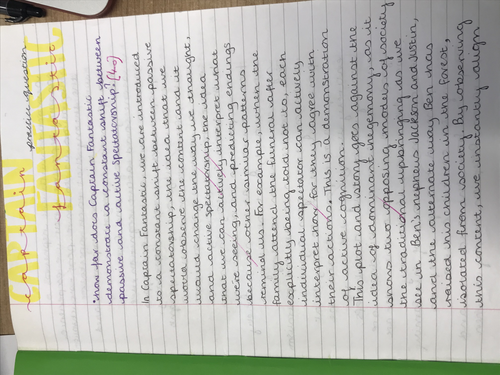 CAPTAIN
captain
FANTASTIC
fantastic
practice question
"how far does Captain Fantastic
demonstrate a constant shift between
passive and active spectatorship." [40]
In Captain Fantastic, we are introduced
to a constant shift between passive
spectatorship, the idea that we
would observe the content and it
would change the way we thought,
and active spectatorship, the idea
that we can actively interpret what
we're seeing, and predicting endings
because other similar patterns
remind us. For example, when the
family attend the funeral after
explicitly being told not to, each
individual spectator can actively
interpret how far they agree with
their actions. This is a demonstration
of active cognition.
This plot and story goes against the
idea of dominant hegemony, as it
shows two opposing models of society
the traditional upbringing as we
see in Ben's nephews Jackson and Justin,
and the alternate way Ben has
raised his children in the forest,
isolated from society. By observing
this content, we instantly align